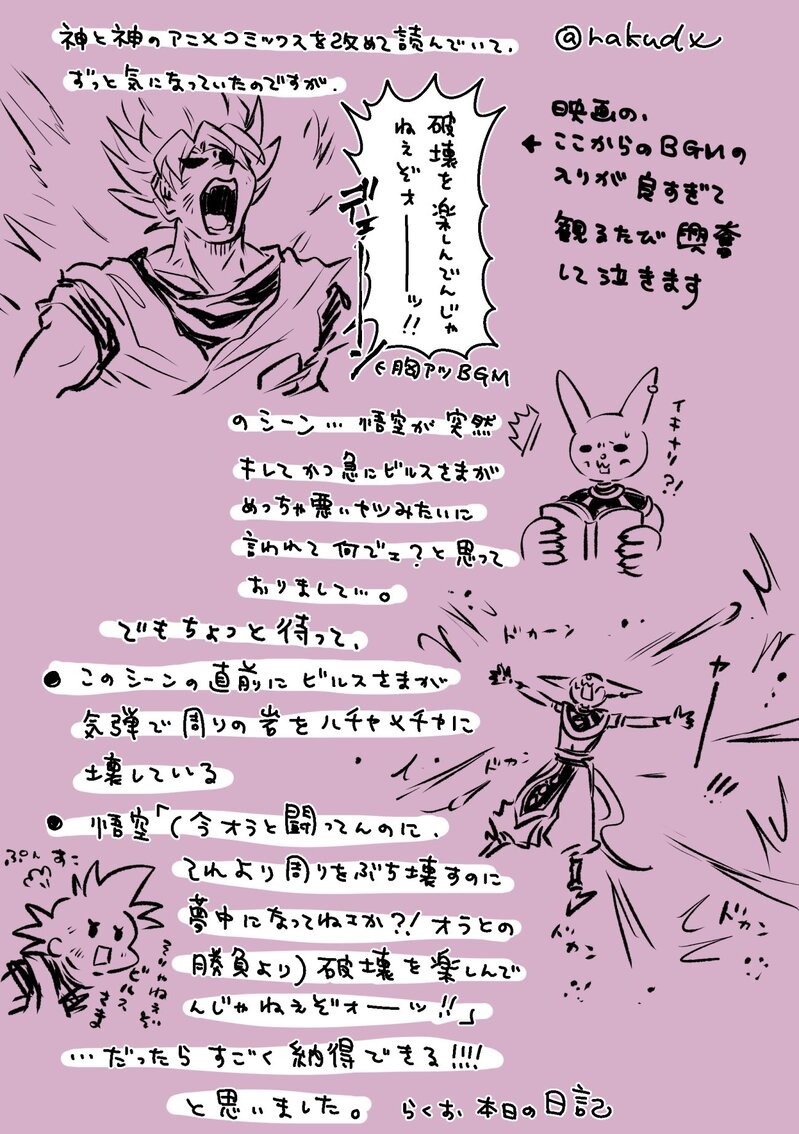 神と神のアニメコミックスを改めて読んでいて、
ずっと気になっていたのですが、
@rakudx
映画の、
←ここからのBGMの
入りが良すぎて
観るたび興奮
して泣きます
破壊を楽しんでんじゃ
ねえぞオーーーッ!!
胸アツBGM
のシーン…悟空が突然
キレてかつ急にビルスさまが
めっちゃ悪いヤツみたいに
言われて何でェ?と思って
おりまして…。
イキナリ?!
でもちょっと待って、
●このシーンの直前にビルスさまが
気弾で周りの岩をハチャメチャに
壊している
ドカーン
ドカン
ドカン
ドカン
●悟空「(今オラと闘ってんのに、
それより周りをぶち壊すのに
夢中になってねェか?!オラとの
勝負より)破壊を楽しんで
んじゃねえぞオーーッ!!」
ぷんすこ
そりゃねえぞ
ビルスさま
…だったらすごく納得できる!!!!
と思いました。
らくお、本日の日記